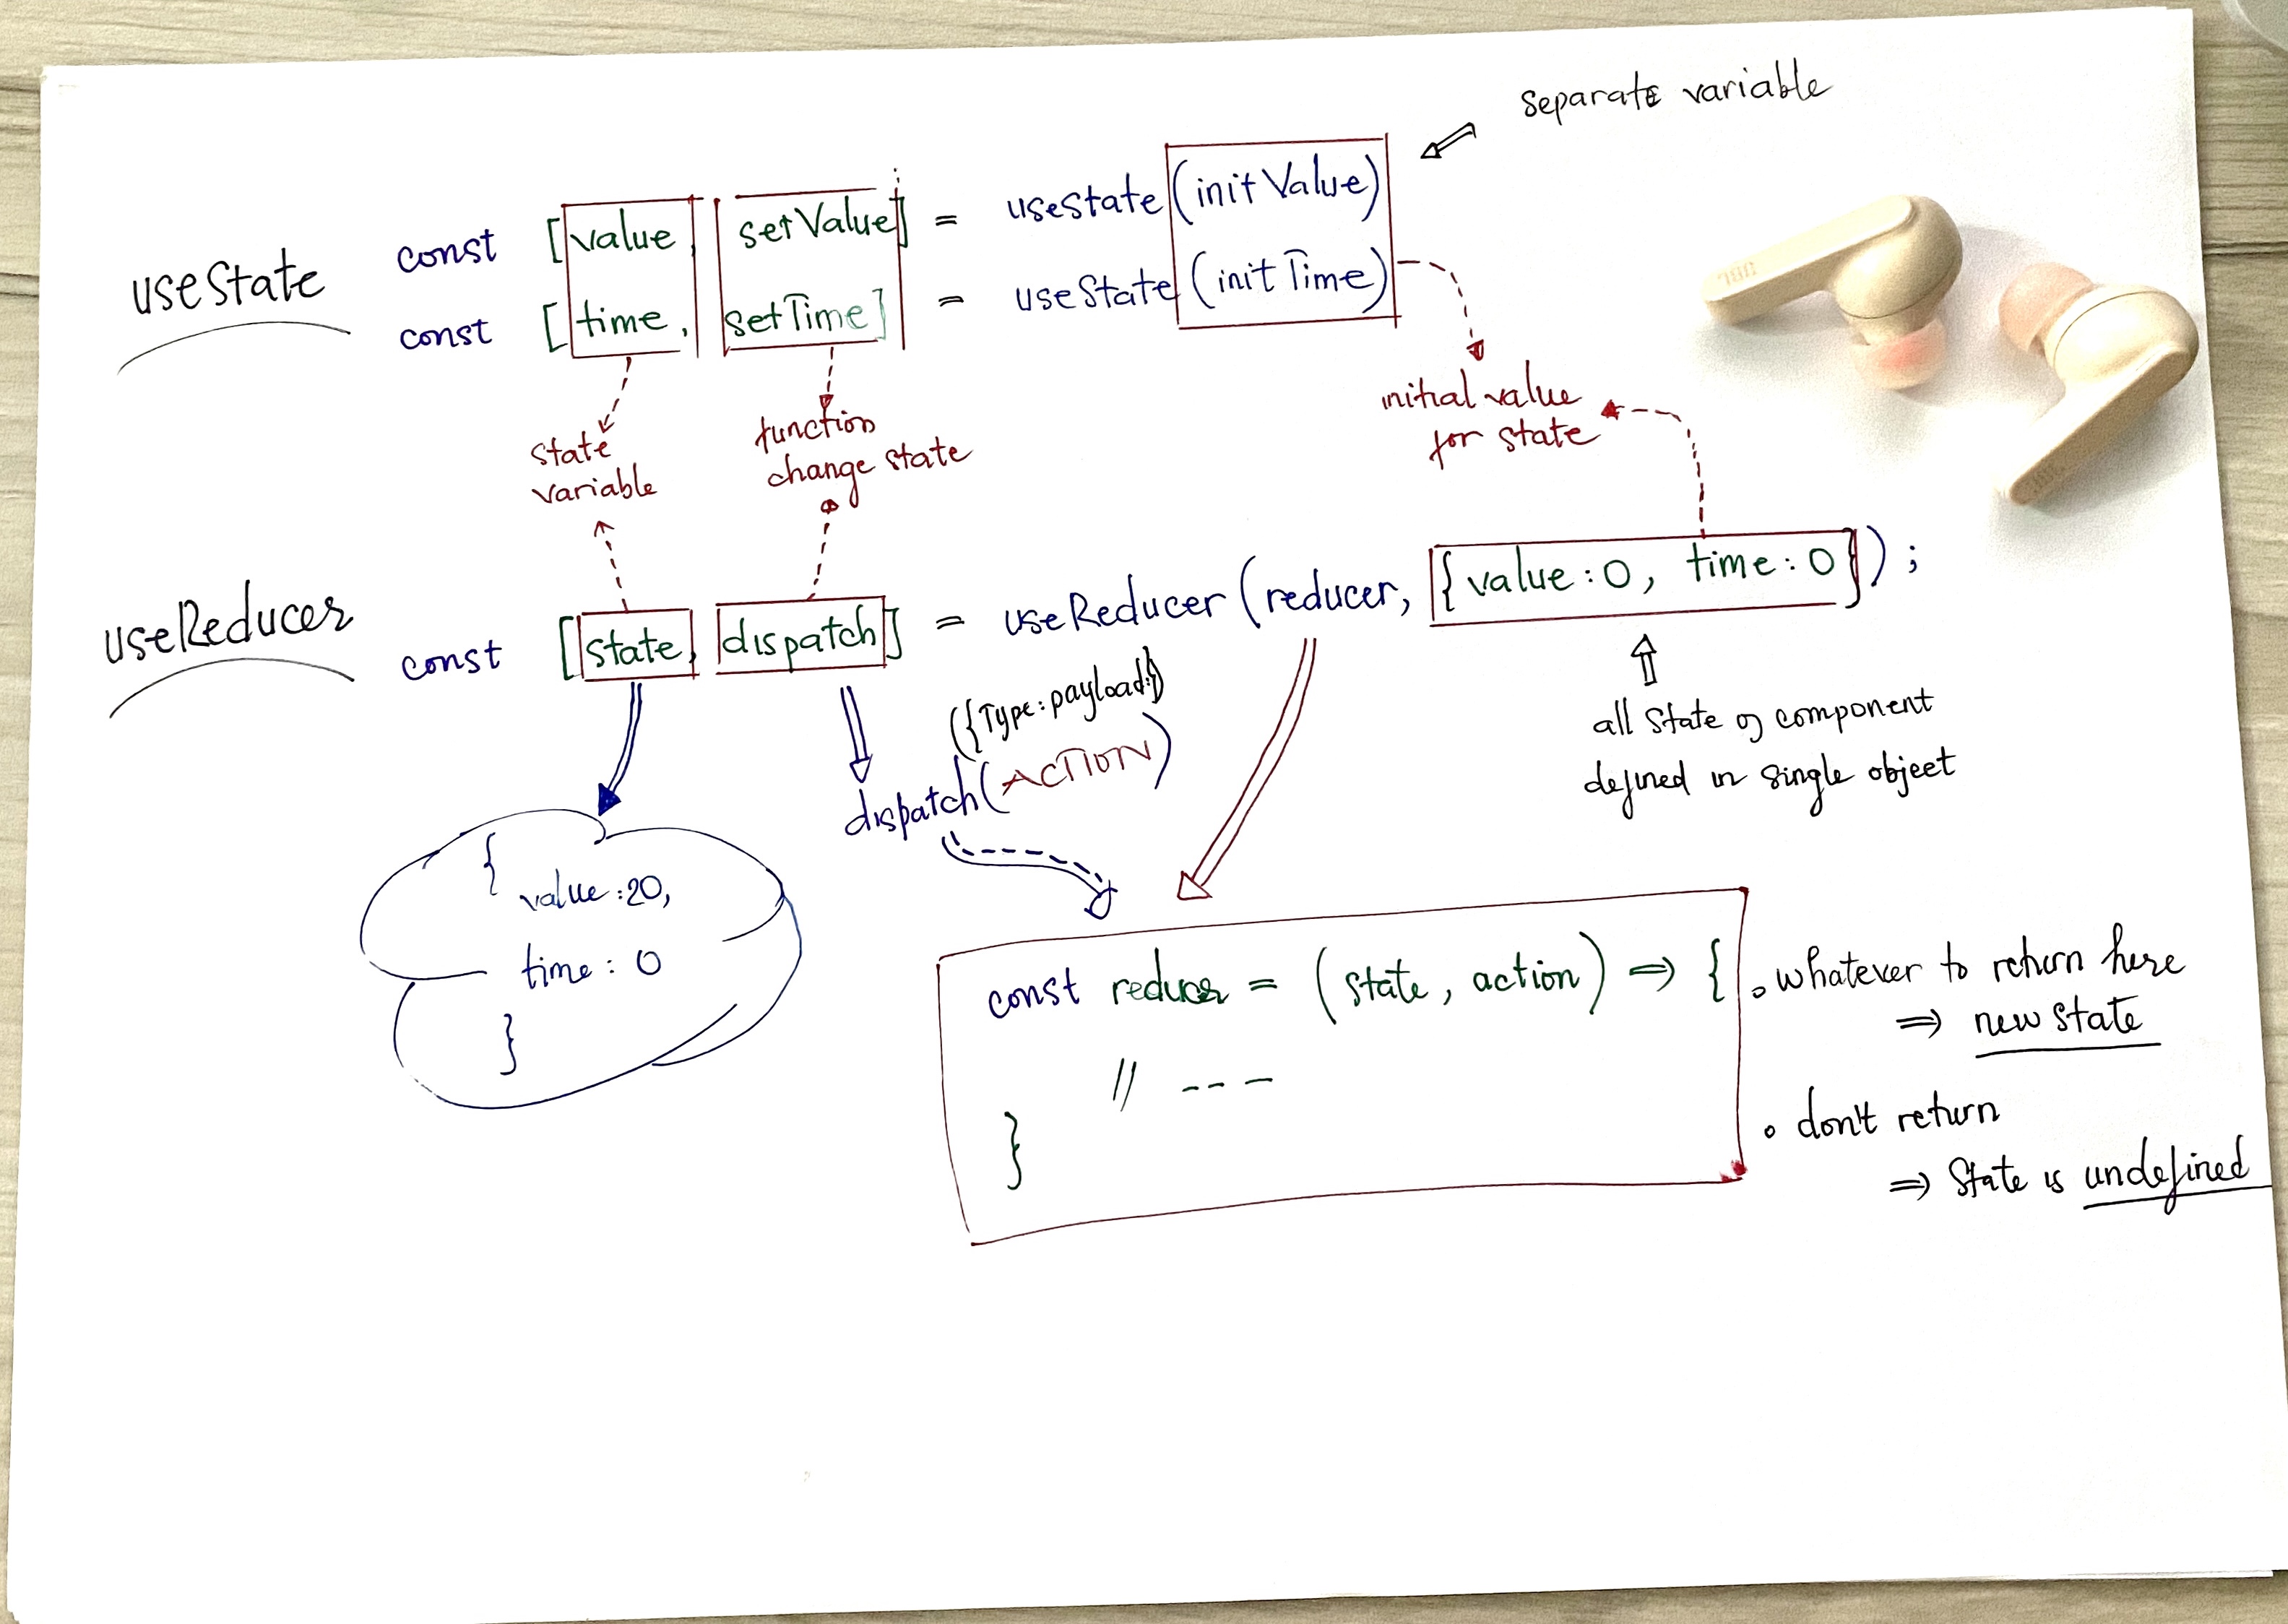 separate variable
useState
const [value, setValue] = useState (initValue)
const [time, setTime] = useState (initTime)
state
variable
function
change state
initial value
for state
useReducer
const [state, dispatch] = useReducer (reducer, {value:0, time:0});
({Type:payload})
dispatch(ACTION)
all state of component
defined in single object
{
value:20,
time: 0
}
const reducer = (state, action) => {
// ---
}
• whatever to return here
=> new state
• don't return
=> state is undefined
JBL